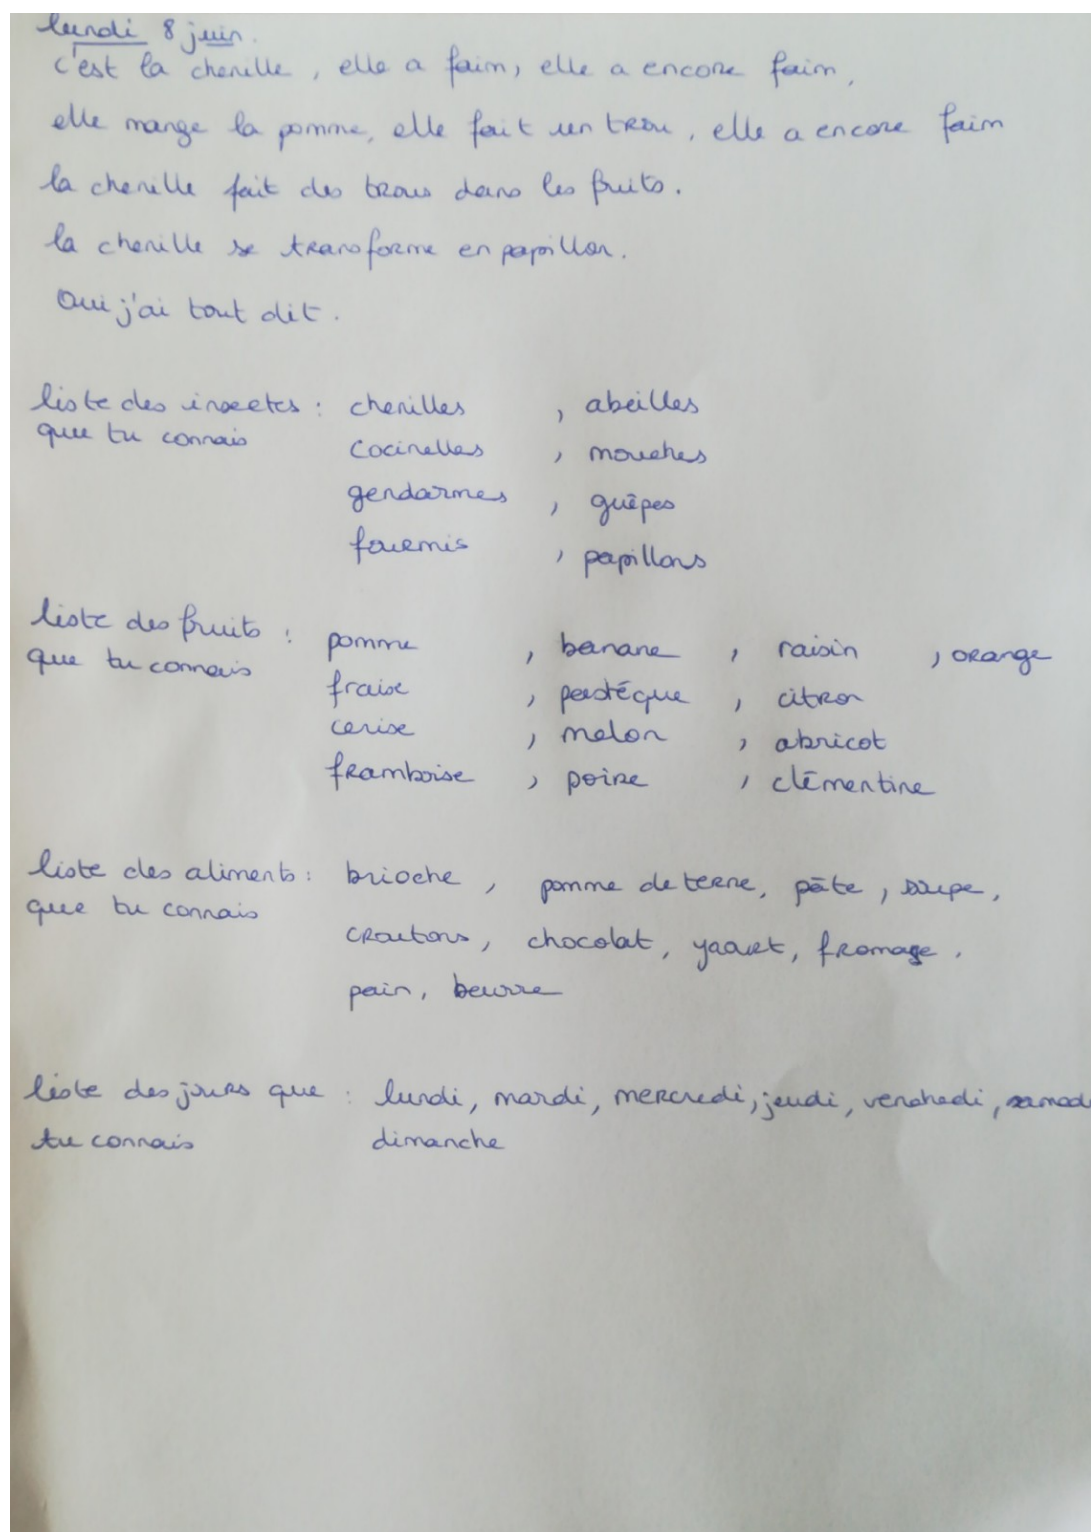 lundi 8 juin.
c'est la chenille, elle a faim, elle a encore faim,
elle mange la pomme, elle fait un trou, elle a encore faim
la chenille fait des trous dans les fruits.
la chenille se transforme en papillon.
Oui j'ai tout dit.
liste des insectes : chenilles , abeilles
que tu connais cocinelles , mouches
gendarmes , guêpes
fourmis , papillons
liste des fruits : pomme , banane , raisin , orange
que tu connais
fraise , pastéque , citron
cerise , melon , abricot
framboise , poire , clémentine
liste des aliments : brioche , pomme de terre, pâte , soupe,
que tu connais
croutons, chocolat, yaourt, fromage.
pain, beurre
liste des jours que : lundi, mardi, mercredi, jeudi, vendredi, samedi
tu connais dimanche